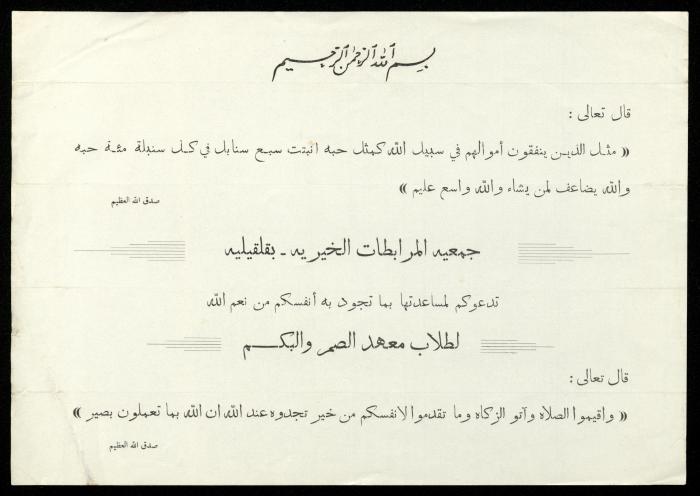 بسم الله الرحمن الرحيم
قال تعالى :
« مثل الذين ينفقون أموالهم في سبيل الله كمثل حبه انبتت سبع سنابل في كل سنبلة مئة حبه
والله يضاعف لمن يشاء والله واسع عليم »
صدق الله العظيم
جمعيه المرابطات الخيريه - بقلقيليه
تدعوكم لمساعدتها بما تجود به أنفسكم من نعم الله
لطلاب معهد الصم والبكم
قال تعالى :
« واقيموا الصلاه وآتو الزكاه وما تقدموا لانفسكم من خير تجدوه عند الله ان الله بما تعملون بصير »
صدق الله العظيم